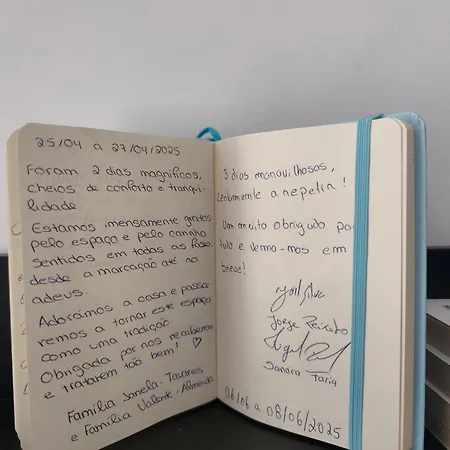 25/04 a 27/04/2025
Foram 2 dias magníficos,
cheios de conforto e tranqui-
lidade
Estamos imensamente gratos
pelo espaço e pelo carinho
sentidos em todas as fases
desde a marcação até ao
adeus.
Adorámos a casa e passa-
remos a tornar este espaço
como uma tradição
Obrigada por nos receberem
e tratarem tão bem! ♡
Família Janela-Tavares
e Família Valente-Almeida
3 dias maravilhosos,
certamente a repetir!
Um muito obrigado por
tudo e vemo-mos em
breve!
Jorge
Sandra Faria
06/06 a 08/06/2025